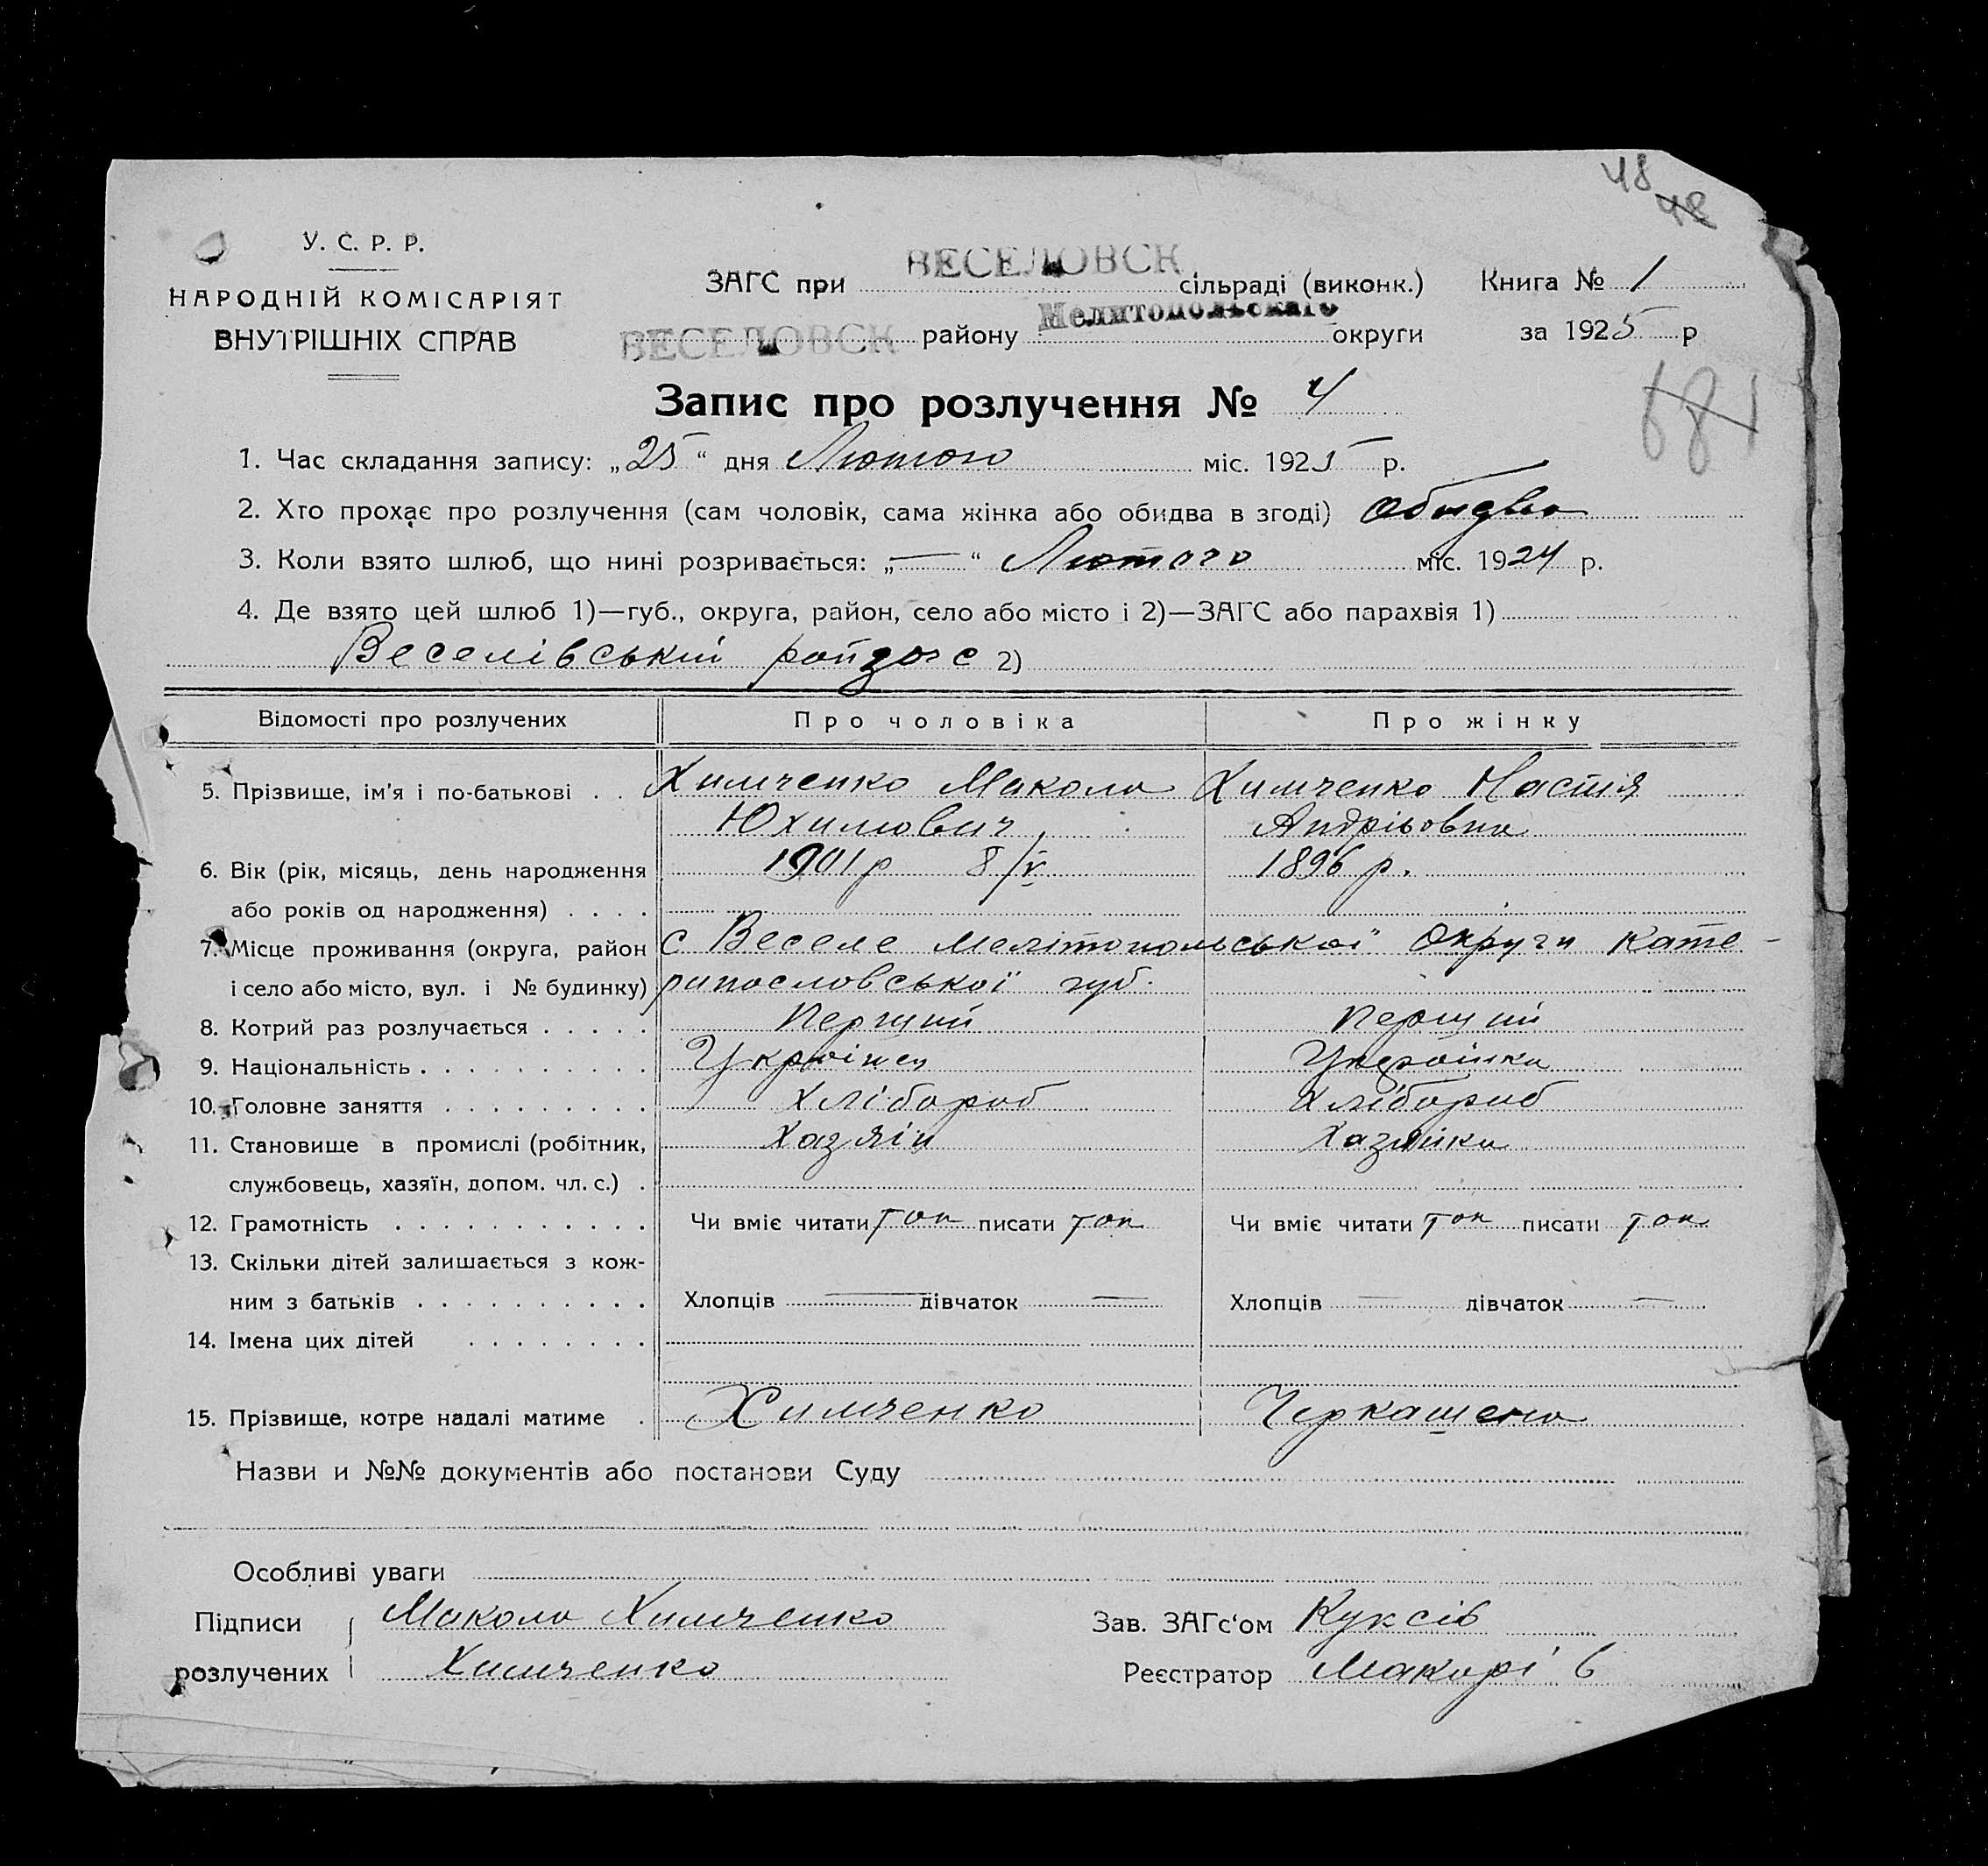 48
48
У. С. Р. Р.
НАРОДНІЙ КОМІСАРІЯТ
ВНУТРІШНІХ СПРАВ
ЗАГС при ВЕСЕЛОВСК сільраді (виконк.) Книга № 1
ВЕСЕЛОВСК району Мелитопольскаго округи за 1925 р
681
Запис про розлучення № 4
1. Час складання запису: „25“ дня Лютого міс. 1925 р.
2. Хто прохає про розлучення (сам чоловік, сама жінка або обидва в згоді) Обидва
3. Коли взято шлюб, що нині розривається: „—“ Лютого міс. 1924 р.
4. Де взято цей шлюб 1)—губ., округа, район, село або місто і 2)—ЗАГС або парахвія 1)
Веселівський райзагс 2)
Відомості про розлучених Про чоловіка Про жінку
5. Прізвище, ім'я і по-батькові . . Химченко Макола Химченко Настя
Юхимович Андрієвна
6. Вік (рік, місяць, день народження 1901 р 8/V 1896 р.
або років од народження) . . . .
7. Місце проживання (округа, район с Веселе Мелітопольської Округи Кате-
і село або місто, вул. і № будинку) ринословської губ.
8. Котрий раз розлучається . . . . . Перший Перший
9. Національність . . . . . . . . . . Украінец Украінка
10. Головне заняття . . . . . . . . . Хлібороб Хлібороб
11. Становище в промислі (робітник, Хазяін Хазяйка
службовець, хазяїн, допом. чл. с.) .
12. Грамотність . . . . . . . . . . . Чи вміє читати так писати так Чи вміє читати так писати так
13. Скільки дітей залишається з кож-
ним з батьків . . . . . . . . . . Хлопців — дівчаток — Хлопців — дівчаток —
14. Імена цих дітей . . . . . . . .
15. Прізвище, котре надалі матиме . Химченко Черкашена
Назви и №№ документів або постанови Суду
Особливі уваги
Підписи Макола Химченко Зав. ЗАГс'ом Куксів
розлучених Химченко Реєстратор Макарі в